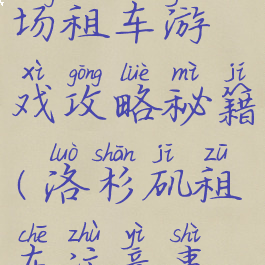 场租车游
xì gōng lüè mì jí
戏攻略秘籍
luò shān jī zū
(洛杉矶租
chē zhù yì shì
车注意事